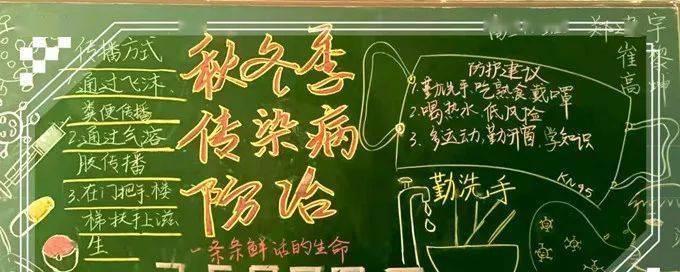 传播方式
1.通过飞沫、
粪便传播
2.通过气溶
胶传播
3.在门把手楼
梯扶手上滋
生
秋冬季
传染病
防治
一条条鲜活的生命
防护建议
1.勤洗手吃熟食戴口罩
2.喝热水,低风险
3.多运动,勤开窗,学知识
KN95
勤洗手
崔
高
宇
坤